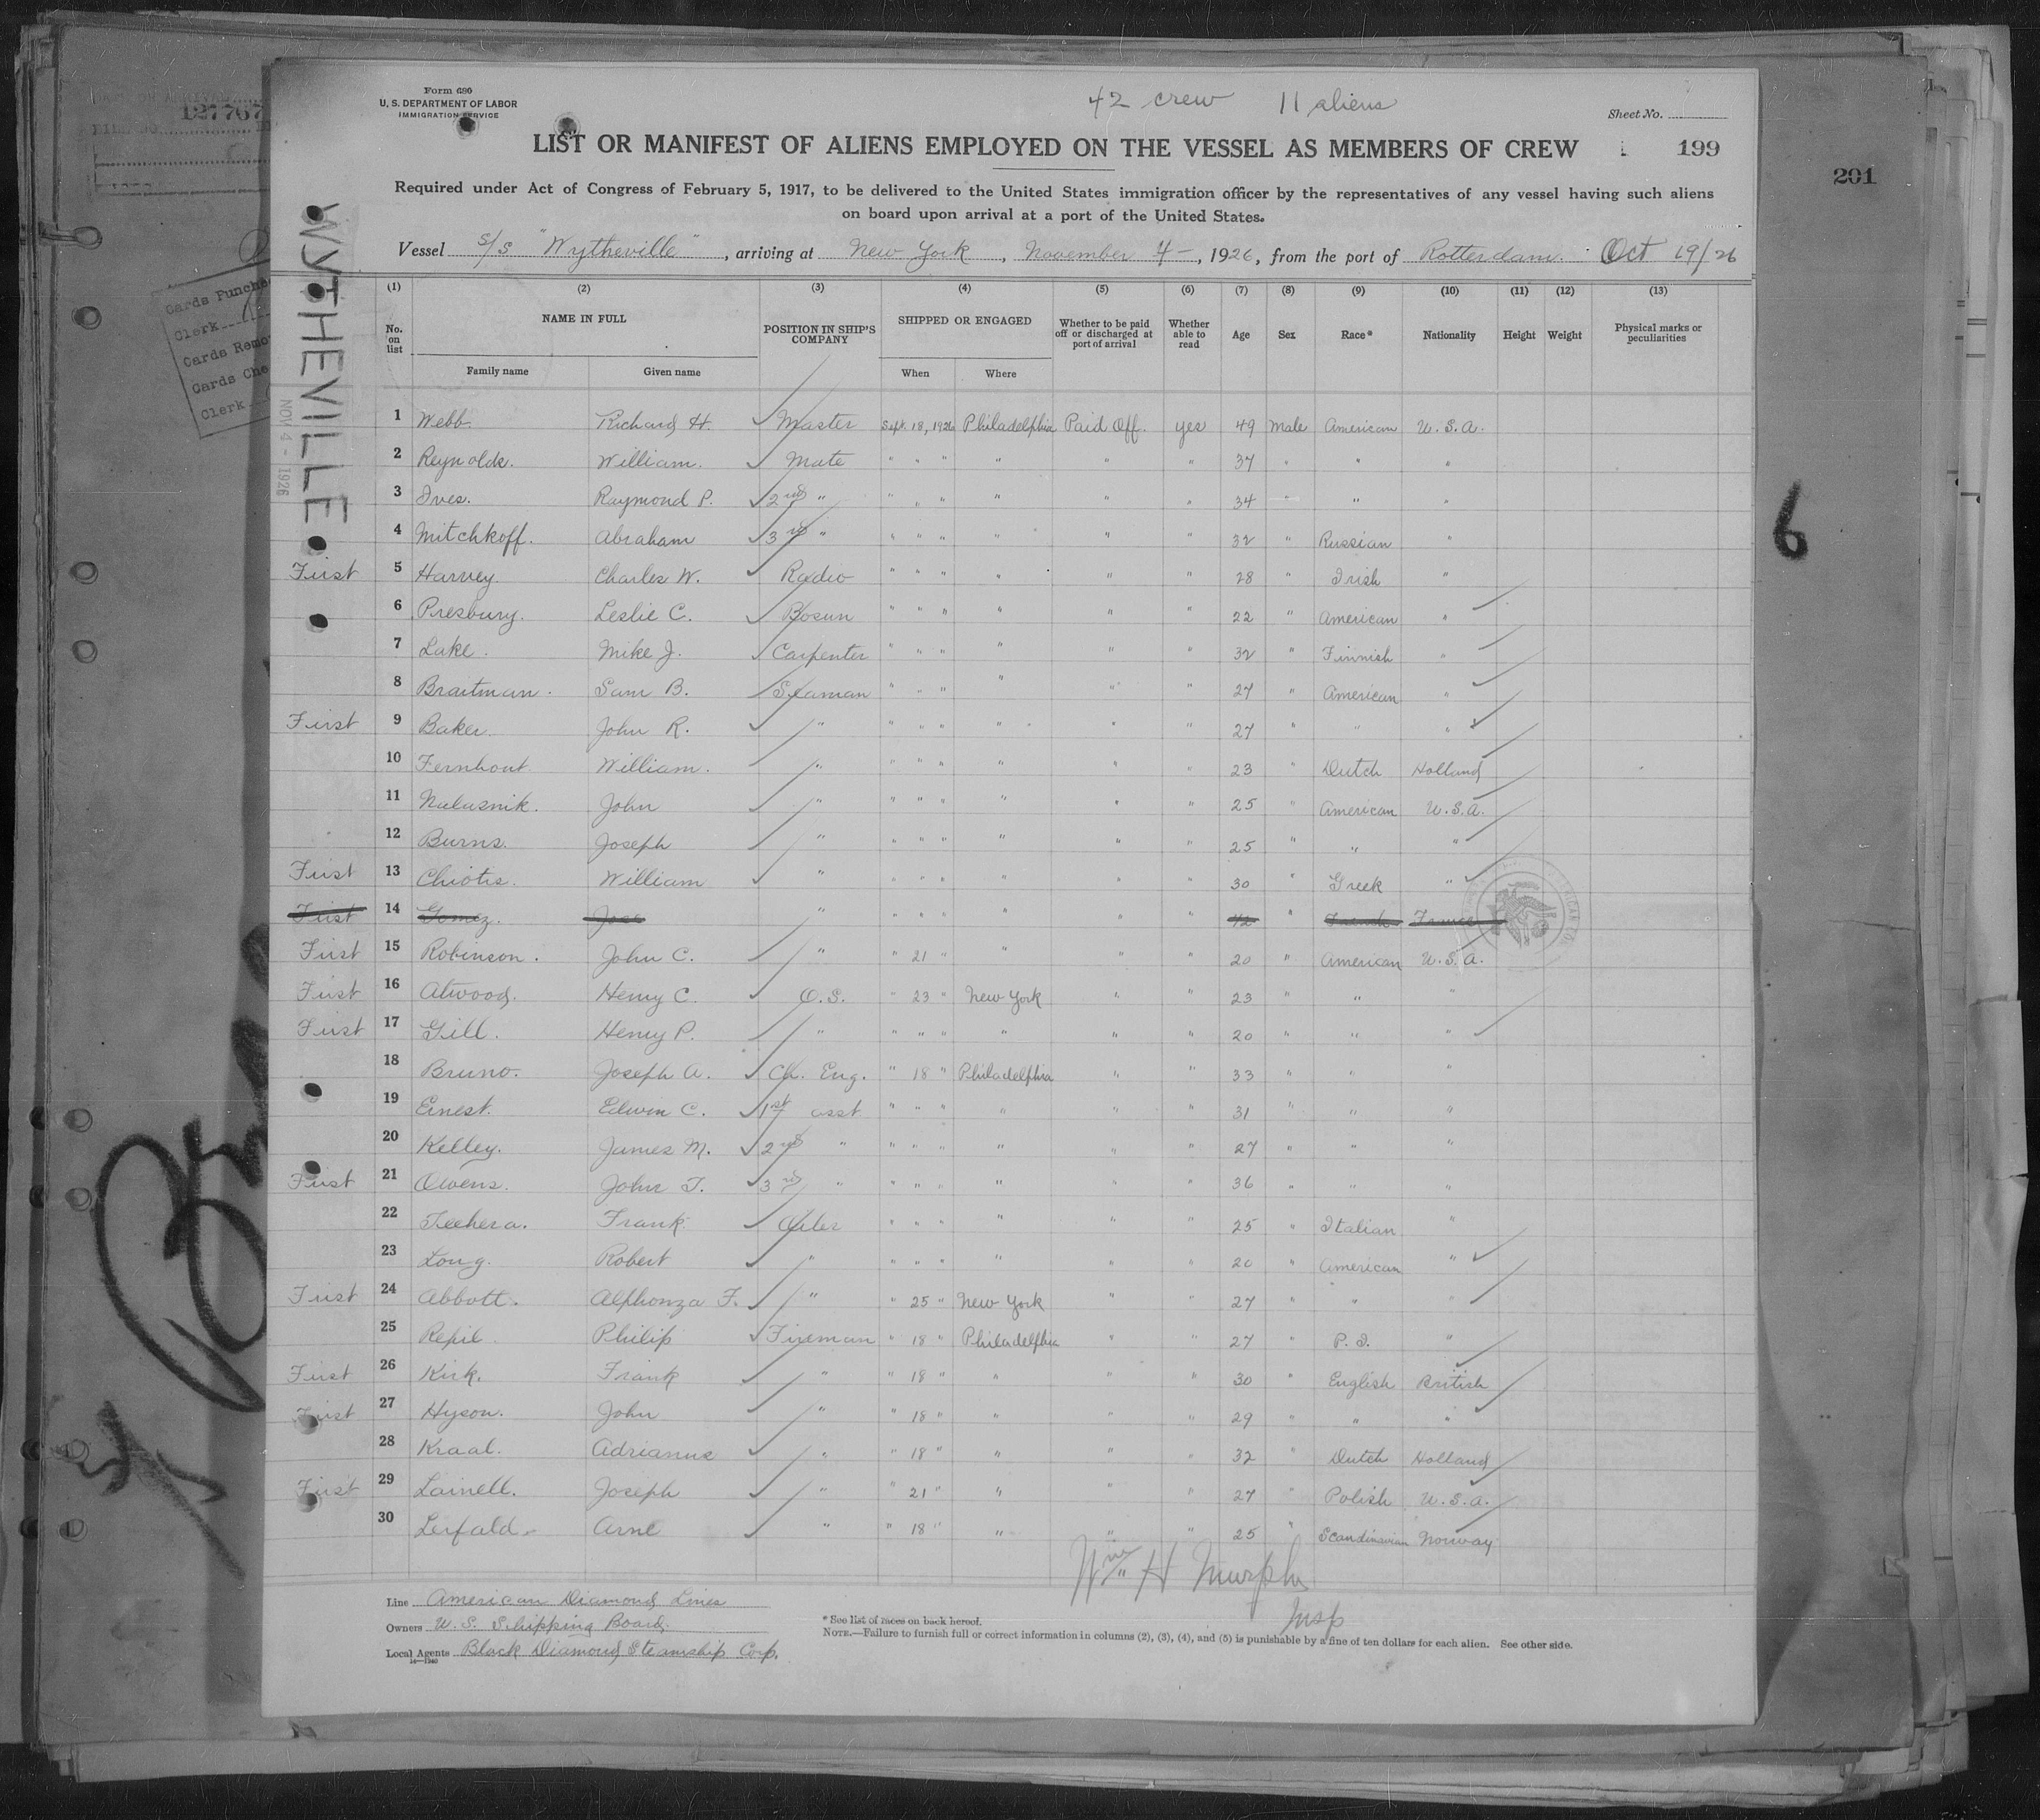 Form 680
U. S. DEPARTMENT OF LABOR
IMMIGRATION SERVICE
42 crew 11 aliens
Sheet No.
127767
LIST OR MANIFEST OF ALIENS EMPLOYED ON THE VESSEL AS MEMBERS OF CREW 199
201
Required under Act of Congress of February 5, 1917, to be delivered to the United States immigration officer by the representatives of any vessel having such aliens
on board upon arrival at a port of the United States.
Vessel S/S "Wytheville", arriving at New York, November 4-, 1926, from the port of Rotterdam. Oct 19/26
WYTHEVILLE
NOV 4 - 1926
Cards Punched
Clerk
Cards
Cards
Clerk
6
(1) (2) (3) (4) (5) (6) (7) (8) (9) (10) (11) (12) (13)
No. on list NAME IN FULL POSITION IN SHIP'S COMPANY SHIPPED OR ENGAGED Whether to be paid off or discharged at port of arrival Whether able to read Age Sex Race* Nationality Height Weight Physical marks or peculiarities
Family name Given name When Where
1 Webb. Richard H. Master Sept. 18, 1926 Philadelphia Paid Off. yes 49 Male American U.S.A.
2 Reynolds. William. Mate " " " " " " 37 " " "
3 Ives. Raymond P. 2nd " " " " " " " 34 " " "
4 Mitchkoff. Abraham 3rd " " " " " " " 32 " Russian "
First 5 Harvey. Charles W. Radio " " " " " " 28 " Irish "
6 Presbury. Leslie C. Bosun " " " " " " 22 " American "
7 Lake. Mike J. Carpenter " " " " " " 32 " Finnish "
8 Braitman. Sam B. Seaman " " " " " " 27 " American "
First 9 Baker. John R. " " " " " " " 27 " " "
10 Fernhout William. " " " " " " " 23 " Dutch Holland
11 John " " " " " " " 25 " American U.S.A.
12 Burns. Joseph " " " " " " " 25 " " "
First 13 Chiotis. William " " " " " " " 30 " Greek "
First 14 Gomez. Jose " " " " " " " 42 " French France
First 15 Robinson. John C. " " 21 " " " " 20 " American U.S.A.
First 16 Atwood. Henry C. O.S. " 23 " New York " " 23 " " "
First 17 Gill. Henry P. " " " " " " " 20 " " "
18 Bruno. Joseph A. Ch. Eng. " 18 " Philadelphia " " 33 " " "
19 Ernest. Edwin C. 1st asst " " " " " " 31 " " "
20 Kelley. James M. 2nd " " " " " " " 27 " " "
First 21 Owens. John T. 3rd " " " " " " " 36 " " "
22 Frank. Oiler " " " " " " 25 " Italian "
23 Long. Robert " " " " " " " 20 " American "
First 24 Abbott. Alphonza F. " " 25 " New York " " 27 " " "
25 Philip Fireman " 18 " Philadelphia " " 27 " P.I. "
First 26 Kirk. Frank " " 18 " " " " 30 " English British
First 27 Hyson. John " " 18 " " " " 29 " " "
28 Kraal. Adrianus " " 18 " " " " 32 " Dutch Holland
First 29 Joseph " " 21 " " " " 27 " Polish U.S.A.
30 Arne " " 18 " " " " 25 " Scandinavian Norway
Wm H Murphy
Insp
Line American Diamond Lines
Owners U.S. Shipping Board.
Local Agents Black Diamond Steamship Corp.
14—1240
* See list of races on back hereof.
NOTE.—Failure to furnish full or correct information in columns (2), (3), (4), and (5) is punishable by a fine of ten dollars for each alien. See other side.